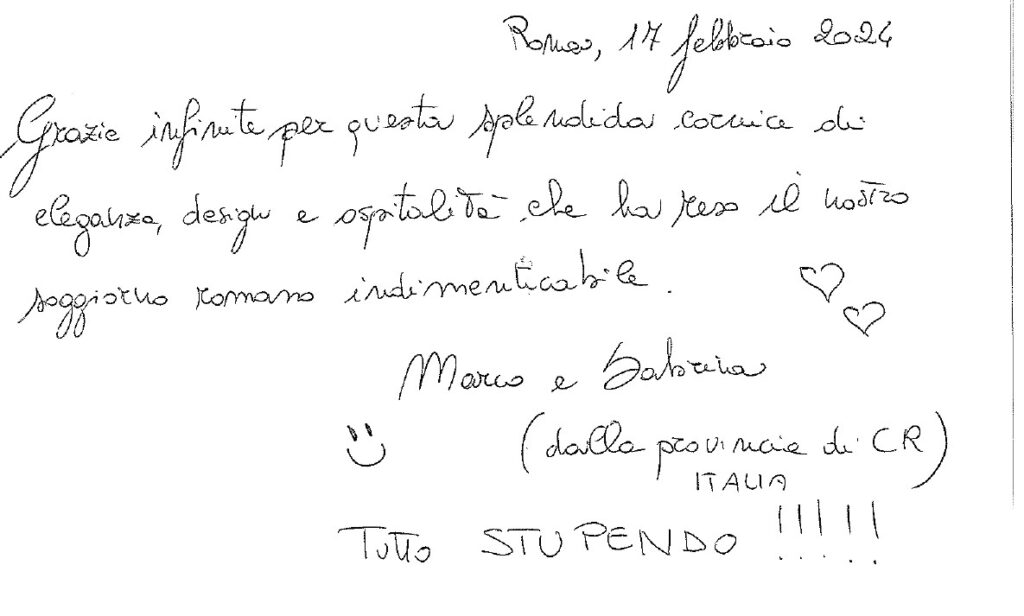 Roma, 17 febbraio 2024
Grazie infinite per questa splendida cornice di
eleganza, design e ospitalità che ha reso il nostro
soggiorno romano indimenticabile.
Marco e Sabrina
(dalla provincia di CR)
ITALIA
TUTTO STUPENDO !!!!!